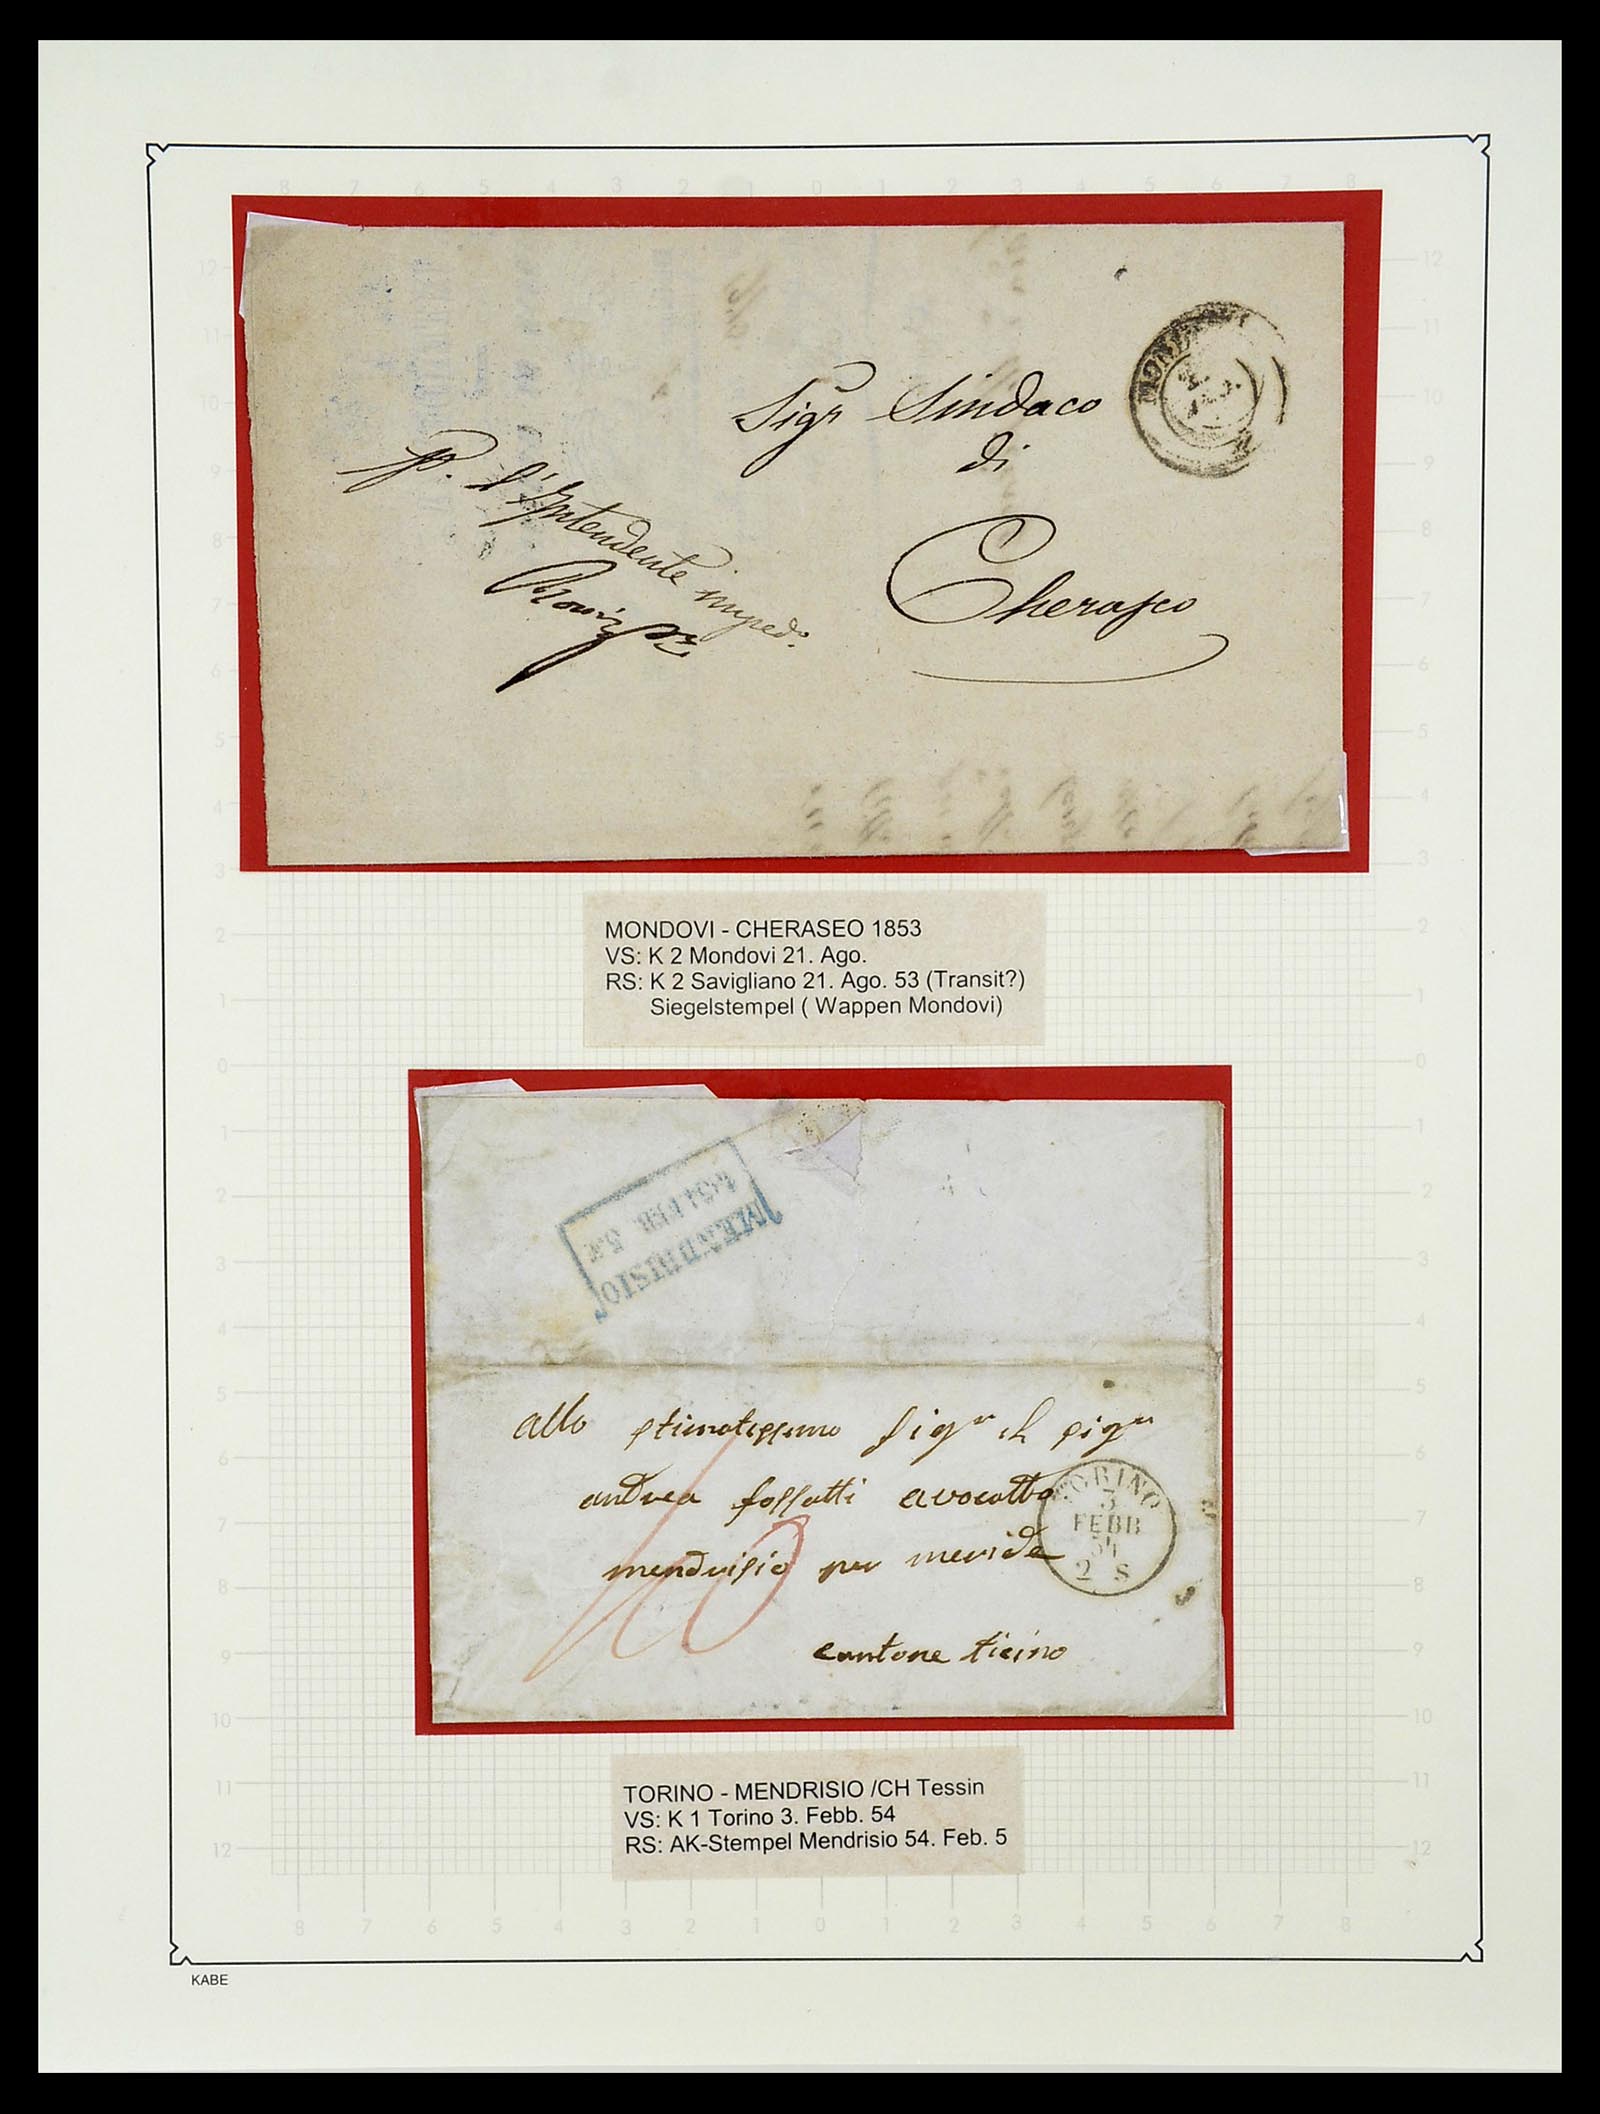 Sigr Sindaco
di
Cherasco
p. l'Intendente imped.
MONDOVI - CHERASEO 1853
VS: K 2 Mondovi 21. Ago.
RS: K 2 Savigliano 21. Ago. 53 (Transit?)
Siegelstempel ( Wappen Mondovi)
MENDRISIO
allo stimatissimo sigr il sigr
andrea fossatti avocatto
mendrisio per meride
cantone ticino
TORINO
3
FEBB
54
2 S
TORINO - MENDRISIO /CH Tessin
VS: K 1 Torino 3. Febb. 54
RS: AK-Stempel Mendrisio 54. Feb. 5
KABE